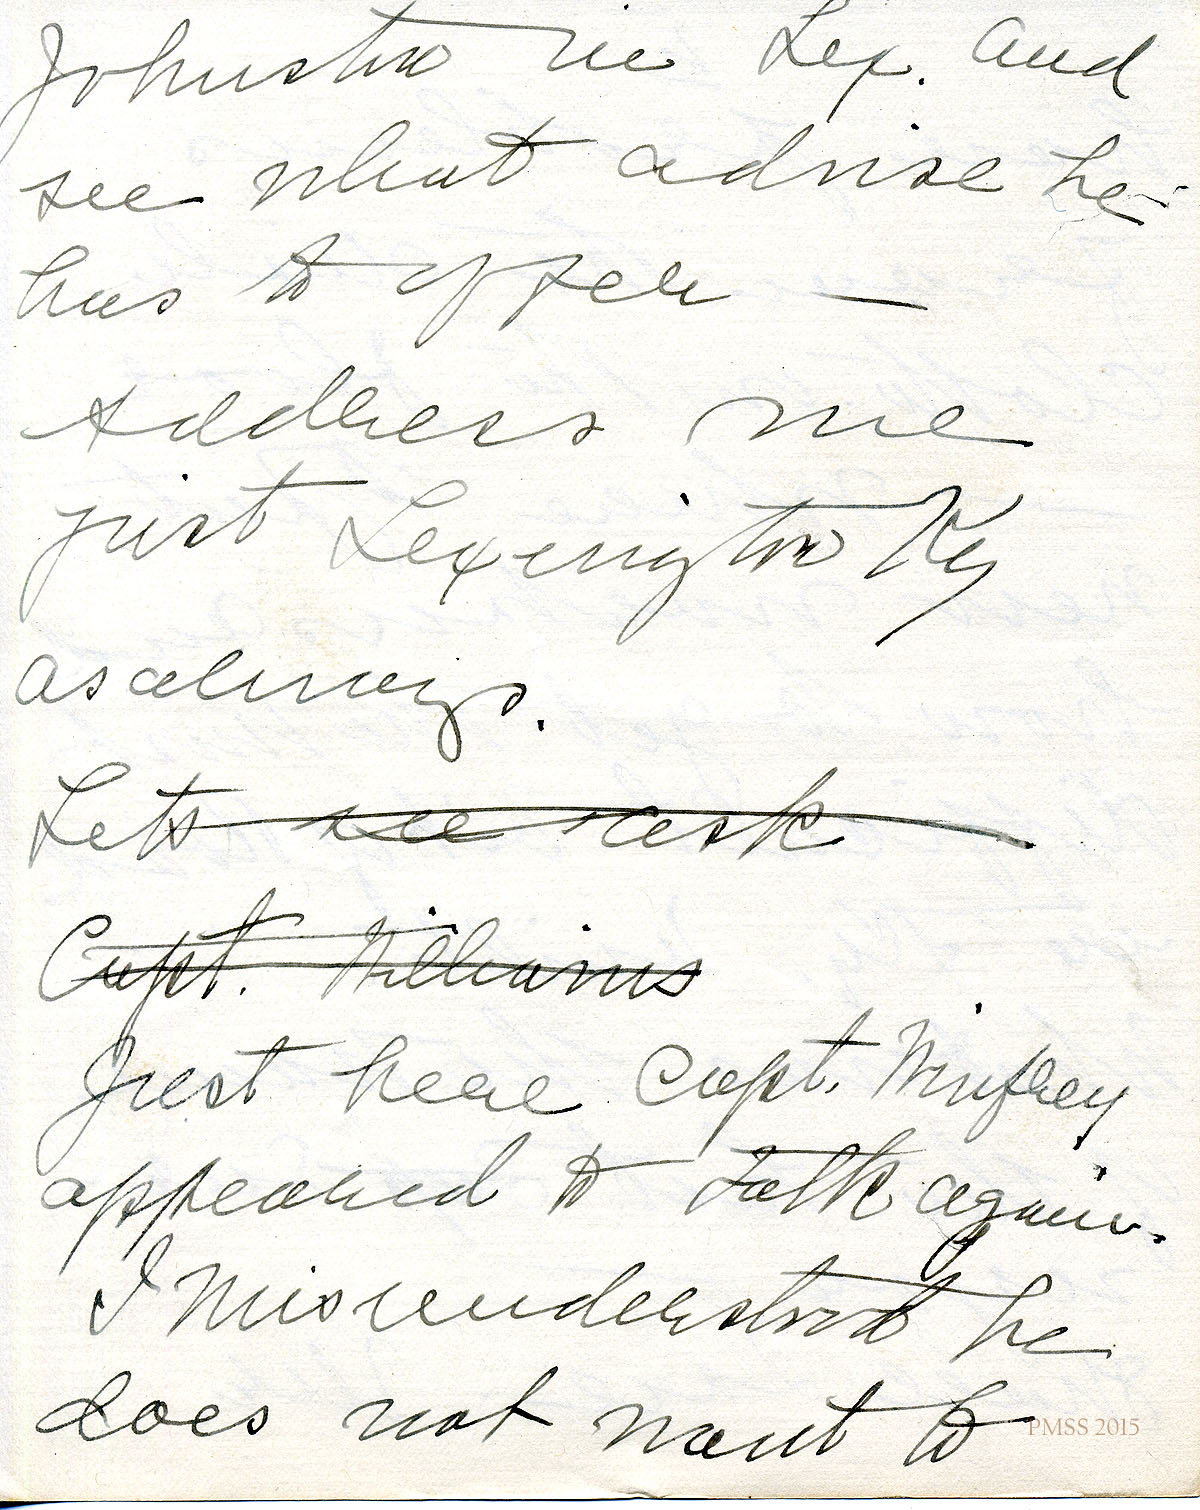 Johnston in Lex. and
see what advise he
has to offer —
Address me
just Lexington Ky
as always.
Lets see ask
Capt. Williams
Just here Capt. Winfrey
appeared to talk again.
I misunderstood he
does not want to
PMSS 2015